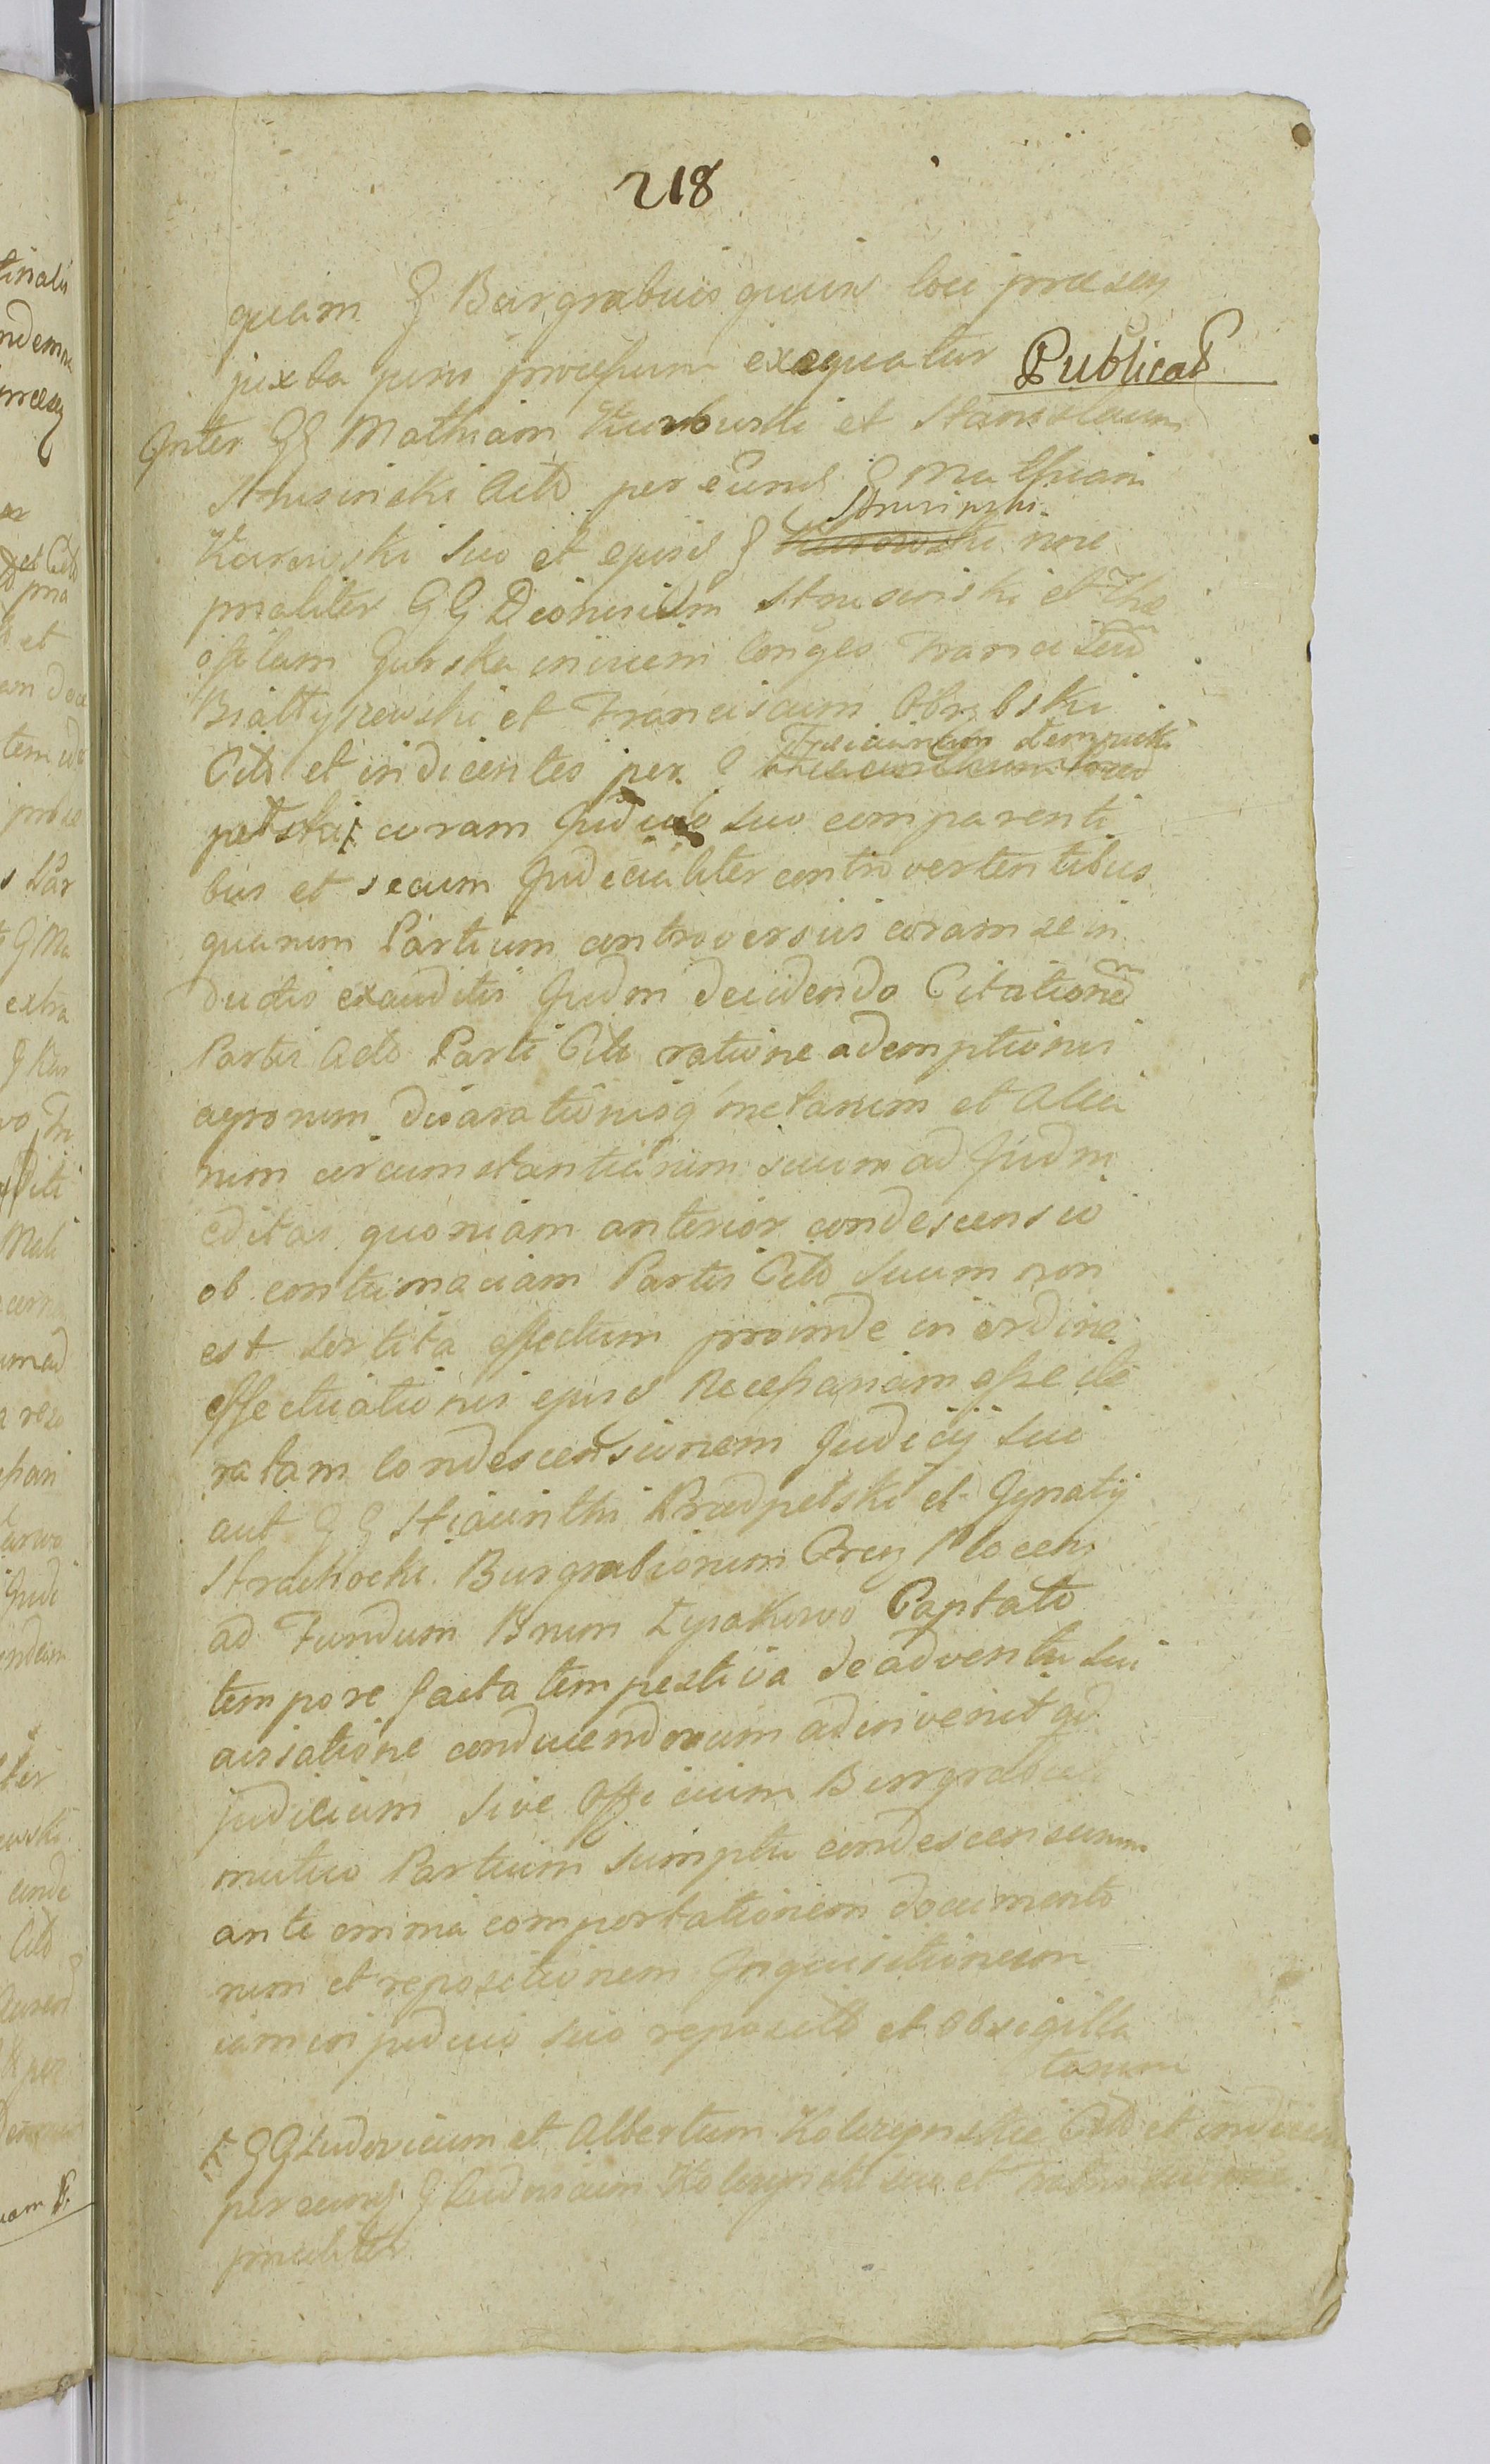 218
quam G Burgrabius quivis loci praesen
juxta juris praescrip exequatur Publicat
Inter GG Mathiam Kurowski et Stanislaum
Strusinski Acto per eund G Mathiam
Kurowski suo et ejusd G Strusinski noie
prnaliter GG Dionisium Strusinski et The
ofilam Gurska invicem Conges Franciscum
Białłyszewski et Franciscum Obrębski
Cito et indicentes per G
petski coram Judicio suo comparenti
bus et secum Judicialiter controvertentibus
quarum Partium controversiis coram se in
ductis exauditis Judm decidendo Citationem
Partis Acto Parti Cito ratione ademptionis
agrorum disarationisq metarum et Alia
rum circumstantiarum suum ad Judm
editas quoniam anterior condescensio
ob contumaciam Partis Cito suum non
est sortita effectum proinde in ordine
effectuationis ejusd necessariam esse ite
ratam Condescensionem Judicij sui
aut GG Hiacinthi Przedpełski et Ignatij
Strachocki Burgrabiorum Cren Plocens
ad Fundum Bnum Łysakowo Captato
tempore facta tempestiva de adventu sui
avisatione conducendorum adinvenit ad
judicium sive Officium Burgrabiale
mutuo Partium sumptu condescensurum
ante omnia comportationem documento
rum et repositionem Inquisitionum
iam in judicio suo reposito et obsigilla
tarum
GG Ludovicum et Albertum Kolczynskie Cito et indicen
per eund G Ludovicum Kolczynski suo et fratris sui noie
prnaliter